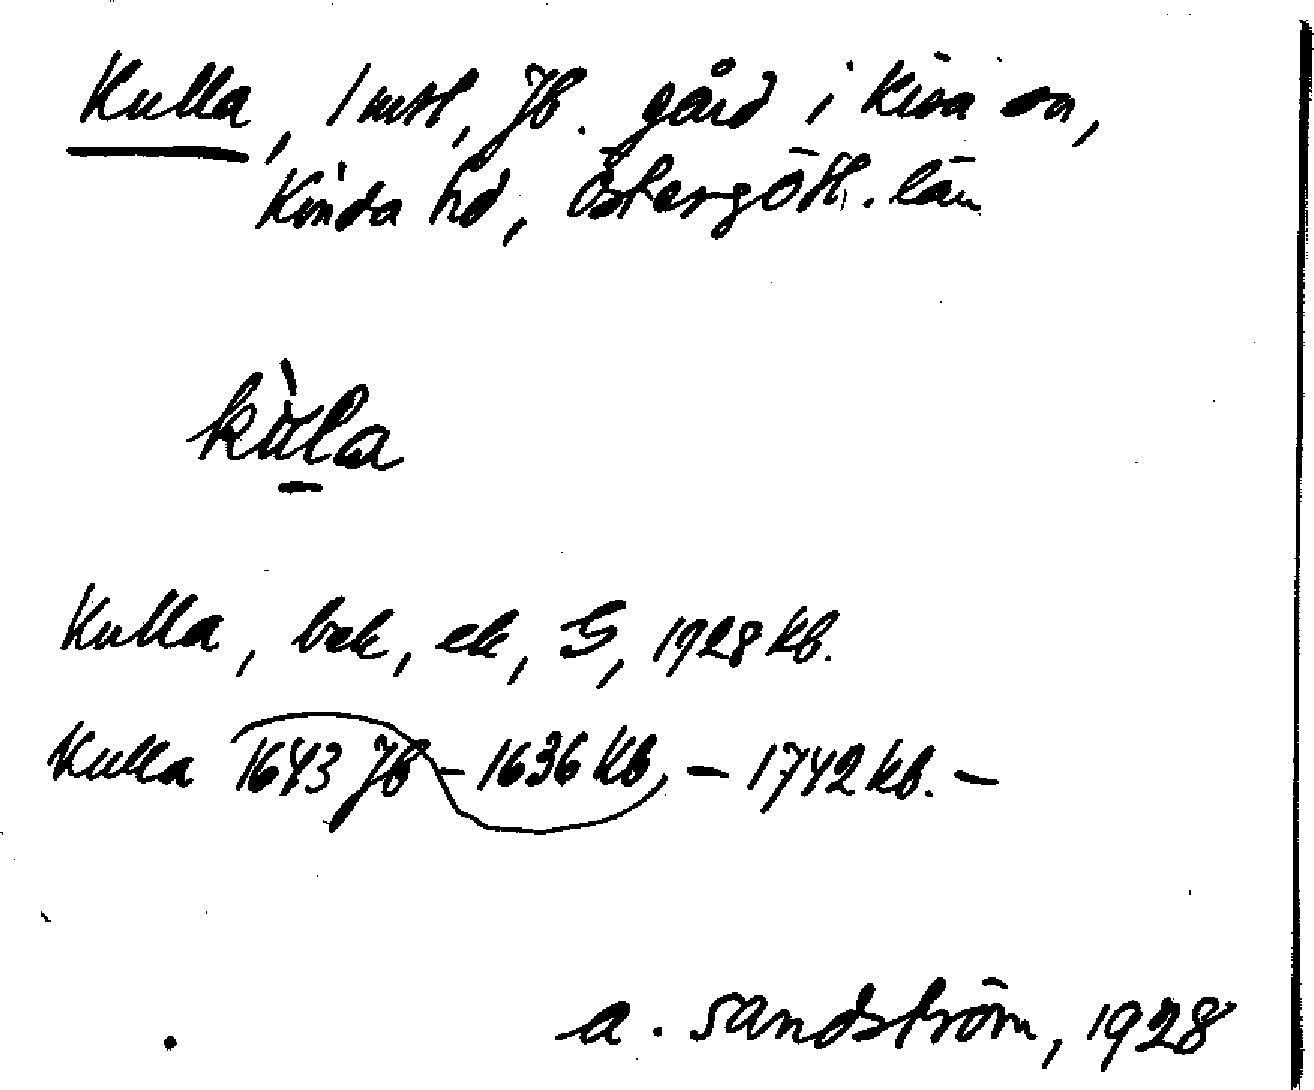 Kulla, 1 mtl, Jb. gård i Kisa sn,
Kinda hd, Östergötl. län
kùla
Kulla, bek, ek, G, 1928 kb.
Kulla 1643 Jb – 1636 kb, – 1742 kb. –
A. Sandström, 1928